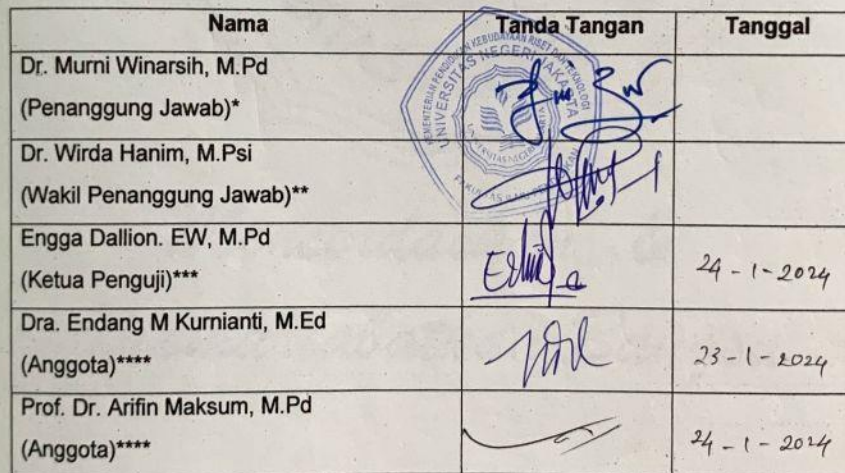 Nama Tanda Tangan Tanggal
Dr. Murni Winarsih, M.Pd
(Penanggung Jawab)*
Dr. Wirda Hanim, M.Psi
(Wakil Penanggung Jawab)**
Engga Dallion. EW, M.Pd
(Ketua Penguji)*** 24 - 1 - 2024
Dra. Endang M Kurnianti, M.Ed
(Anggota)**** 23 - 1 - 2024
Prof. Dr. Arifin Maksum, M.Pd
(Anggota)**** 24 - 1 - 2024
UNIVERSITAS NEGERI JAKARTA